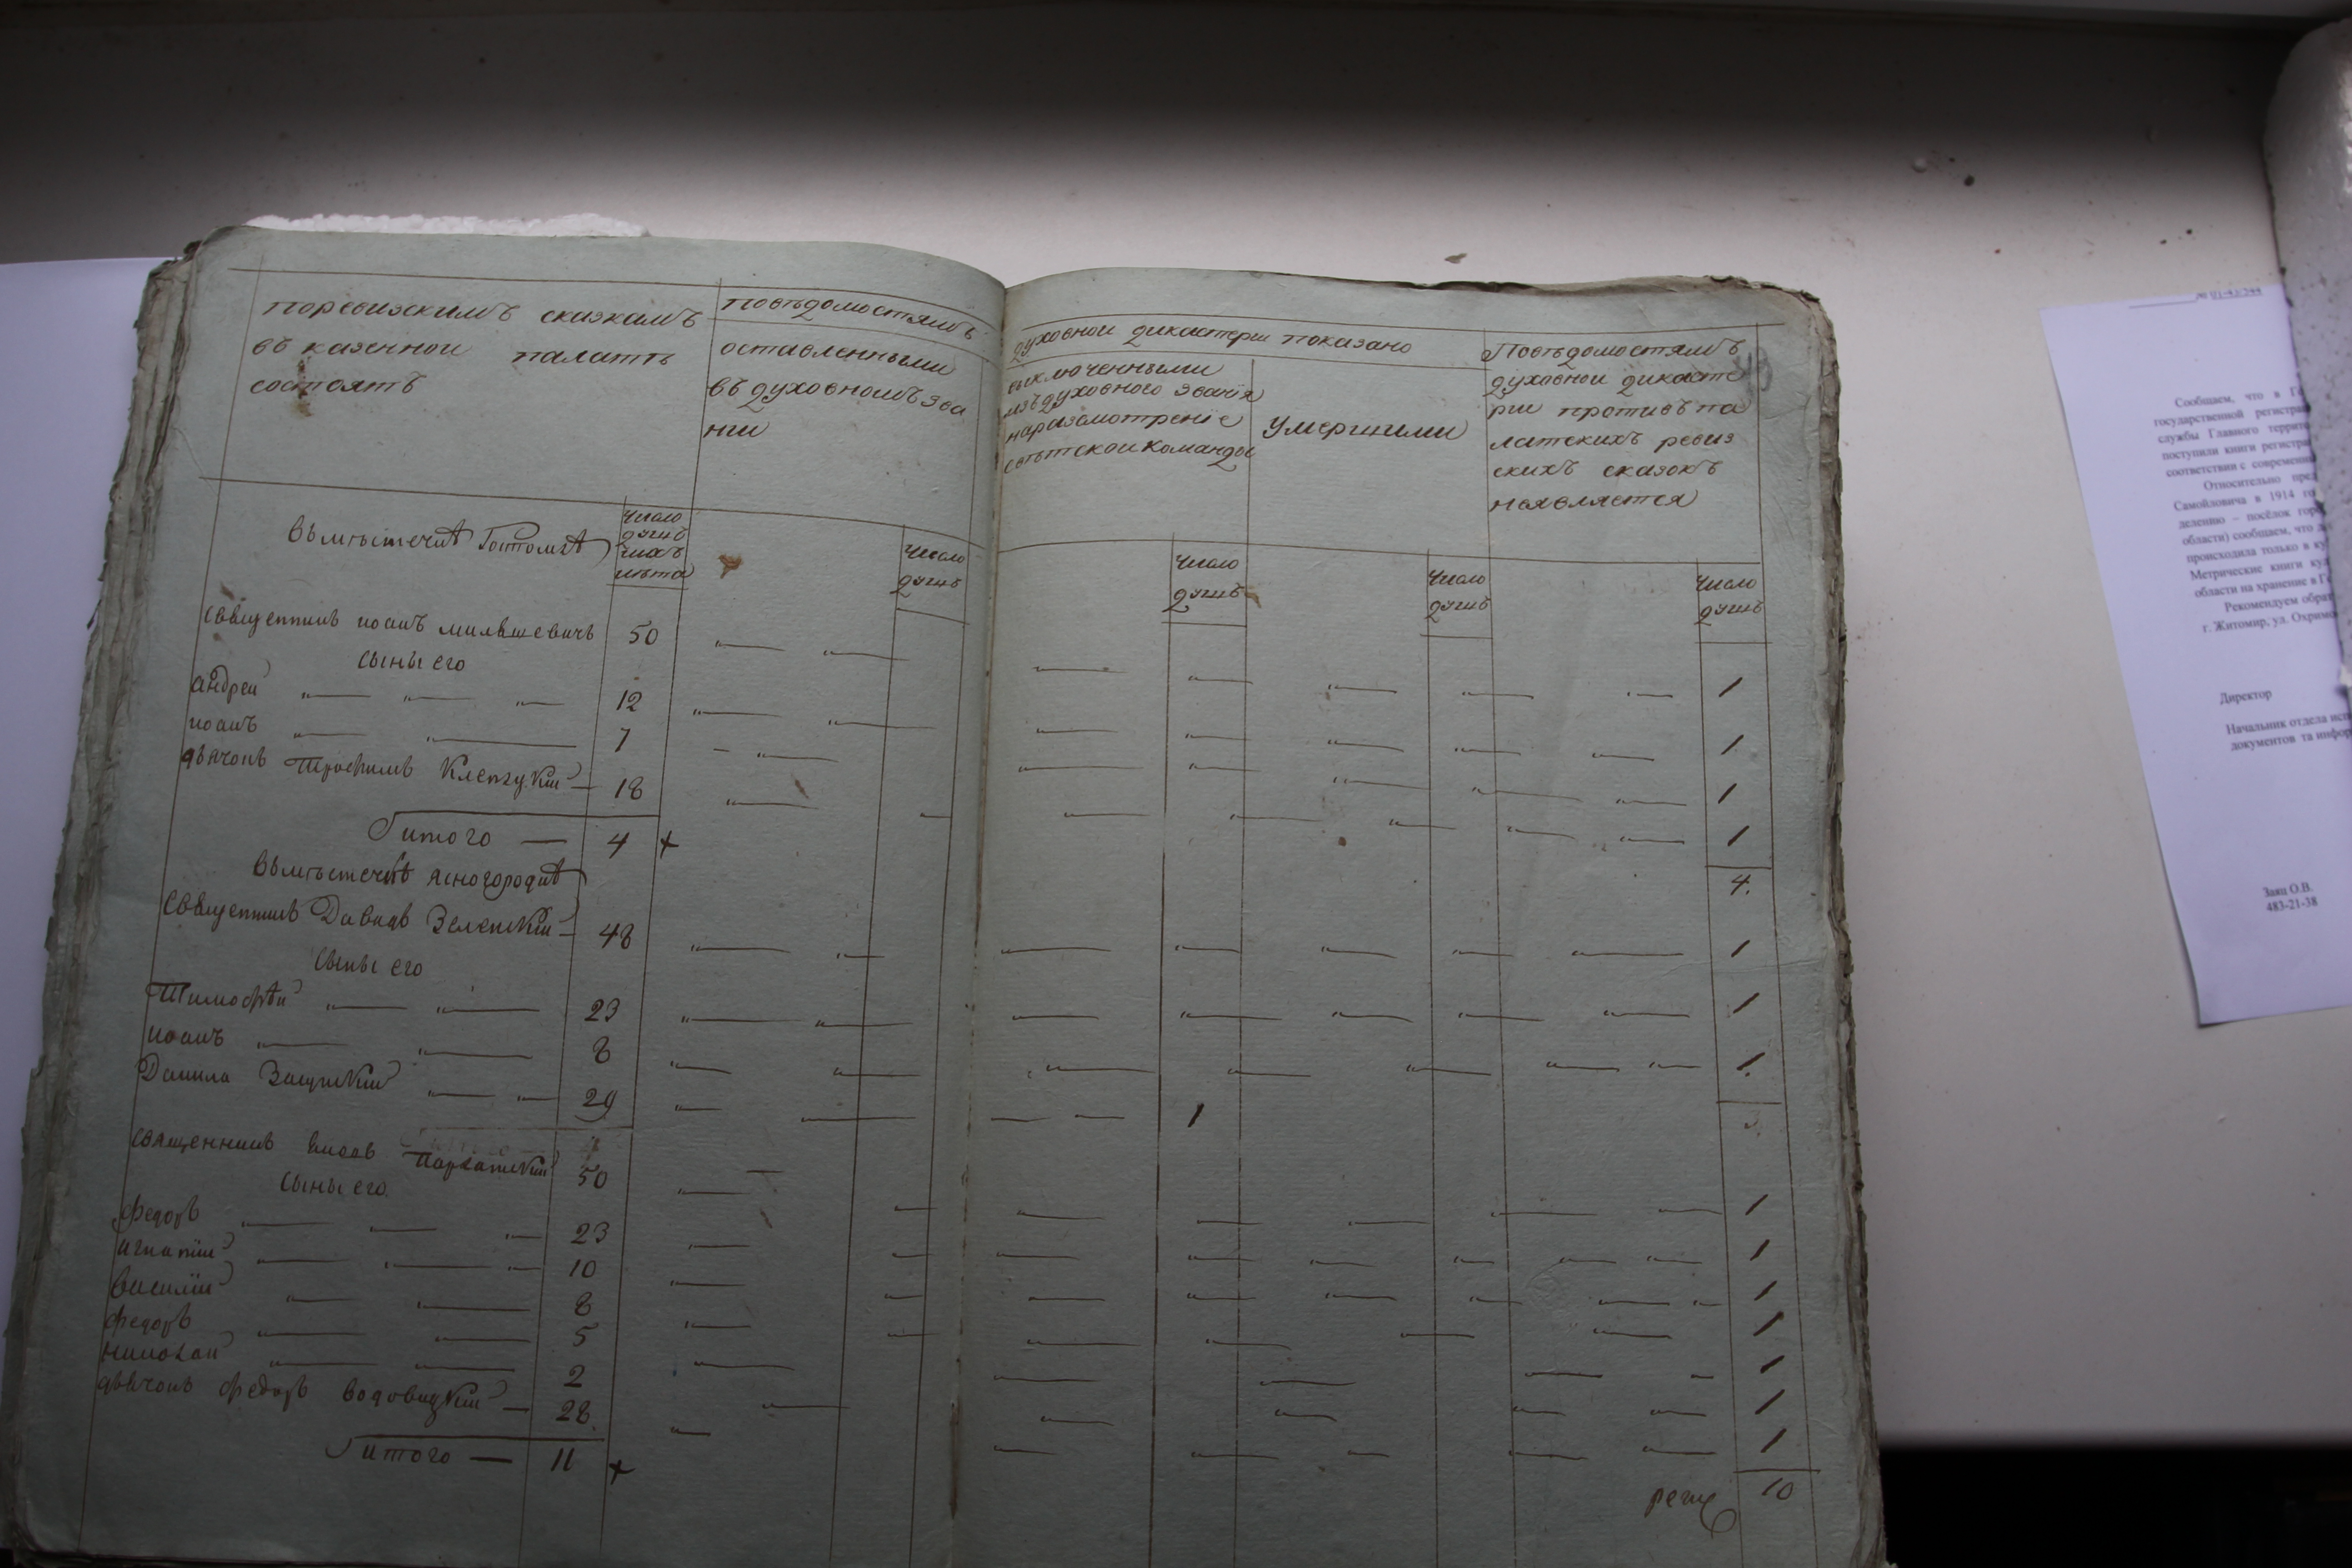 поревизскимъ сказкамъ
въ казенной палатѣ
состоятъ
повѣдомостямъ
оставленными
въ духовномъ зва
нии
духовной дикастерии показано
выключенными
изъ духовного звания
на разсмотрение
свѣтской команды
умершими
Повѣдомостямъ
духовной дикасте
рии противъ па
латскихъ ревиз
скихъ сказокъ
неявляется
Въ мѣстечкѣ Гостомлѣ
число
душъ
ихъ
лѣта
число
душъ
число
душъ
число
душъ
число
душъ
Священникъ иоанъ 50
сыны его
андрей 12 1
иоанъ 7 1
дьячокъ Трофимъ 18 1
итого — 4 + 4.
Въ мѣстечкѣ ясногородкѣ
Священникъ Давидъ Зеленский — 48 1
сыны его
Тимофѣй 23 1
иоанъ 8 1.
Данила 29 1
священникъ 50 1
сыны его
федоръ 23 1
игнатий 10 1
василий 8 1
федоръ 5 1
николай 2 1
дьячокъ федоръ — 28. 1
итого — 11 + 10
№ 01-43/544
Сообщаем, что в
государственной регистра
службы Главного террито
поступили книги регистра
соответствии с современн
Относительно пред
Самойловича в 1914 го
делению – посёлок горо
области) сообщаем, что
происходила только в ку
Метрические книги
области на хранение в Г
Рекомендуем обрат
г. Житомир, ул. Охримо
Директор
Начальник отдела исп
документов та инфор
Заяц О.В.
483-21-38